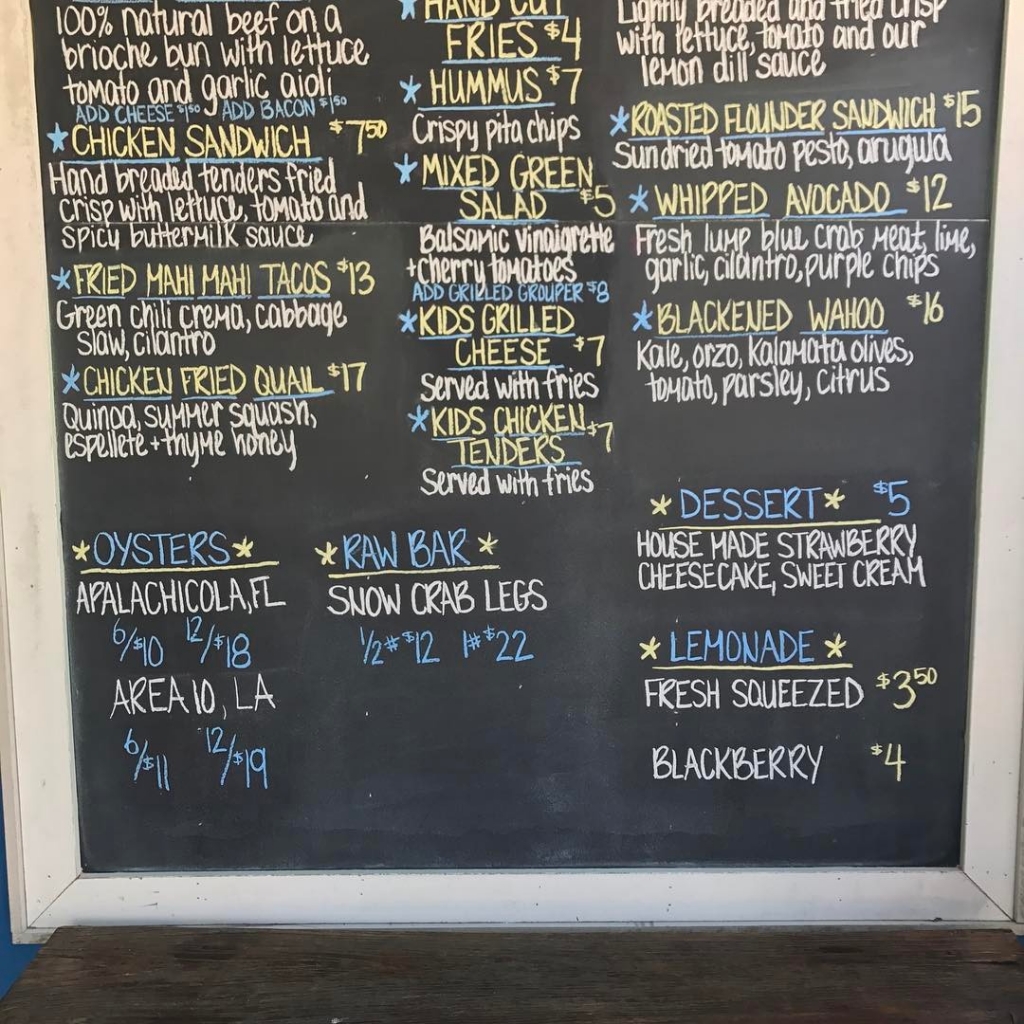 100% natural beef on a
brioche bun with lettuce
tomato and garlic aioli
ADD CHEESE $1.50 ADD BACON $1.50
* CHICKEN SANDWICH $7.50
Hand breaded tenders fried
crisp with lettuce, tomato and
spicy buttermilk sauce
* FRIED MAHI MAHI TACOS $13
Green chili crema, cabbage
slaw, cilantro
* CHICKEN FRIED QUAIL $17
Quinoa, summer squash,
espellete + thyme honey
* HAND CUT
FRIES $4
* HUMMUS $7
Crispy pita chips
* MIXED GREEN
SALAD $5
Balsamic vinaigrette
+ cherry tomatoes
ADD GRILLED GROUPER $8
* KIDS GRILLED
CHEESE $7
Served with fries
* KIDS CHICKEN
TENDERS $7
Served with fries
Lightly breaded and fried crisp
with lettuce, tomato and our
lemon dill sauce
* ROASTED FLOUNDER SANDWICH $15
Sundried tomato pesto, arugula
* WHIPPED AVOCADO $12
Fresh lump blue crab meat, lime,
garlic, cilantro, purple chips
* BLACKENED WAHOO $16
Kale, orzo, kalamata olives,
tomato, parsley, citrus
* OYSTERS *
APALACHICOLA, FL
6/$10 12/$18
AREA 10, LA
6/$11 12/$19
* RAW BAR *
SNOW CRAB LEGS
1/2# $12 1# $22
* DESSERT * $5
HOUSE MADE STRAWBERRY
CHEESECAKE, SWEET CREAM
* LEMONADE *
FRESH SQUEEZED $3.50
BLACKBERRY $4